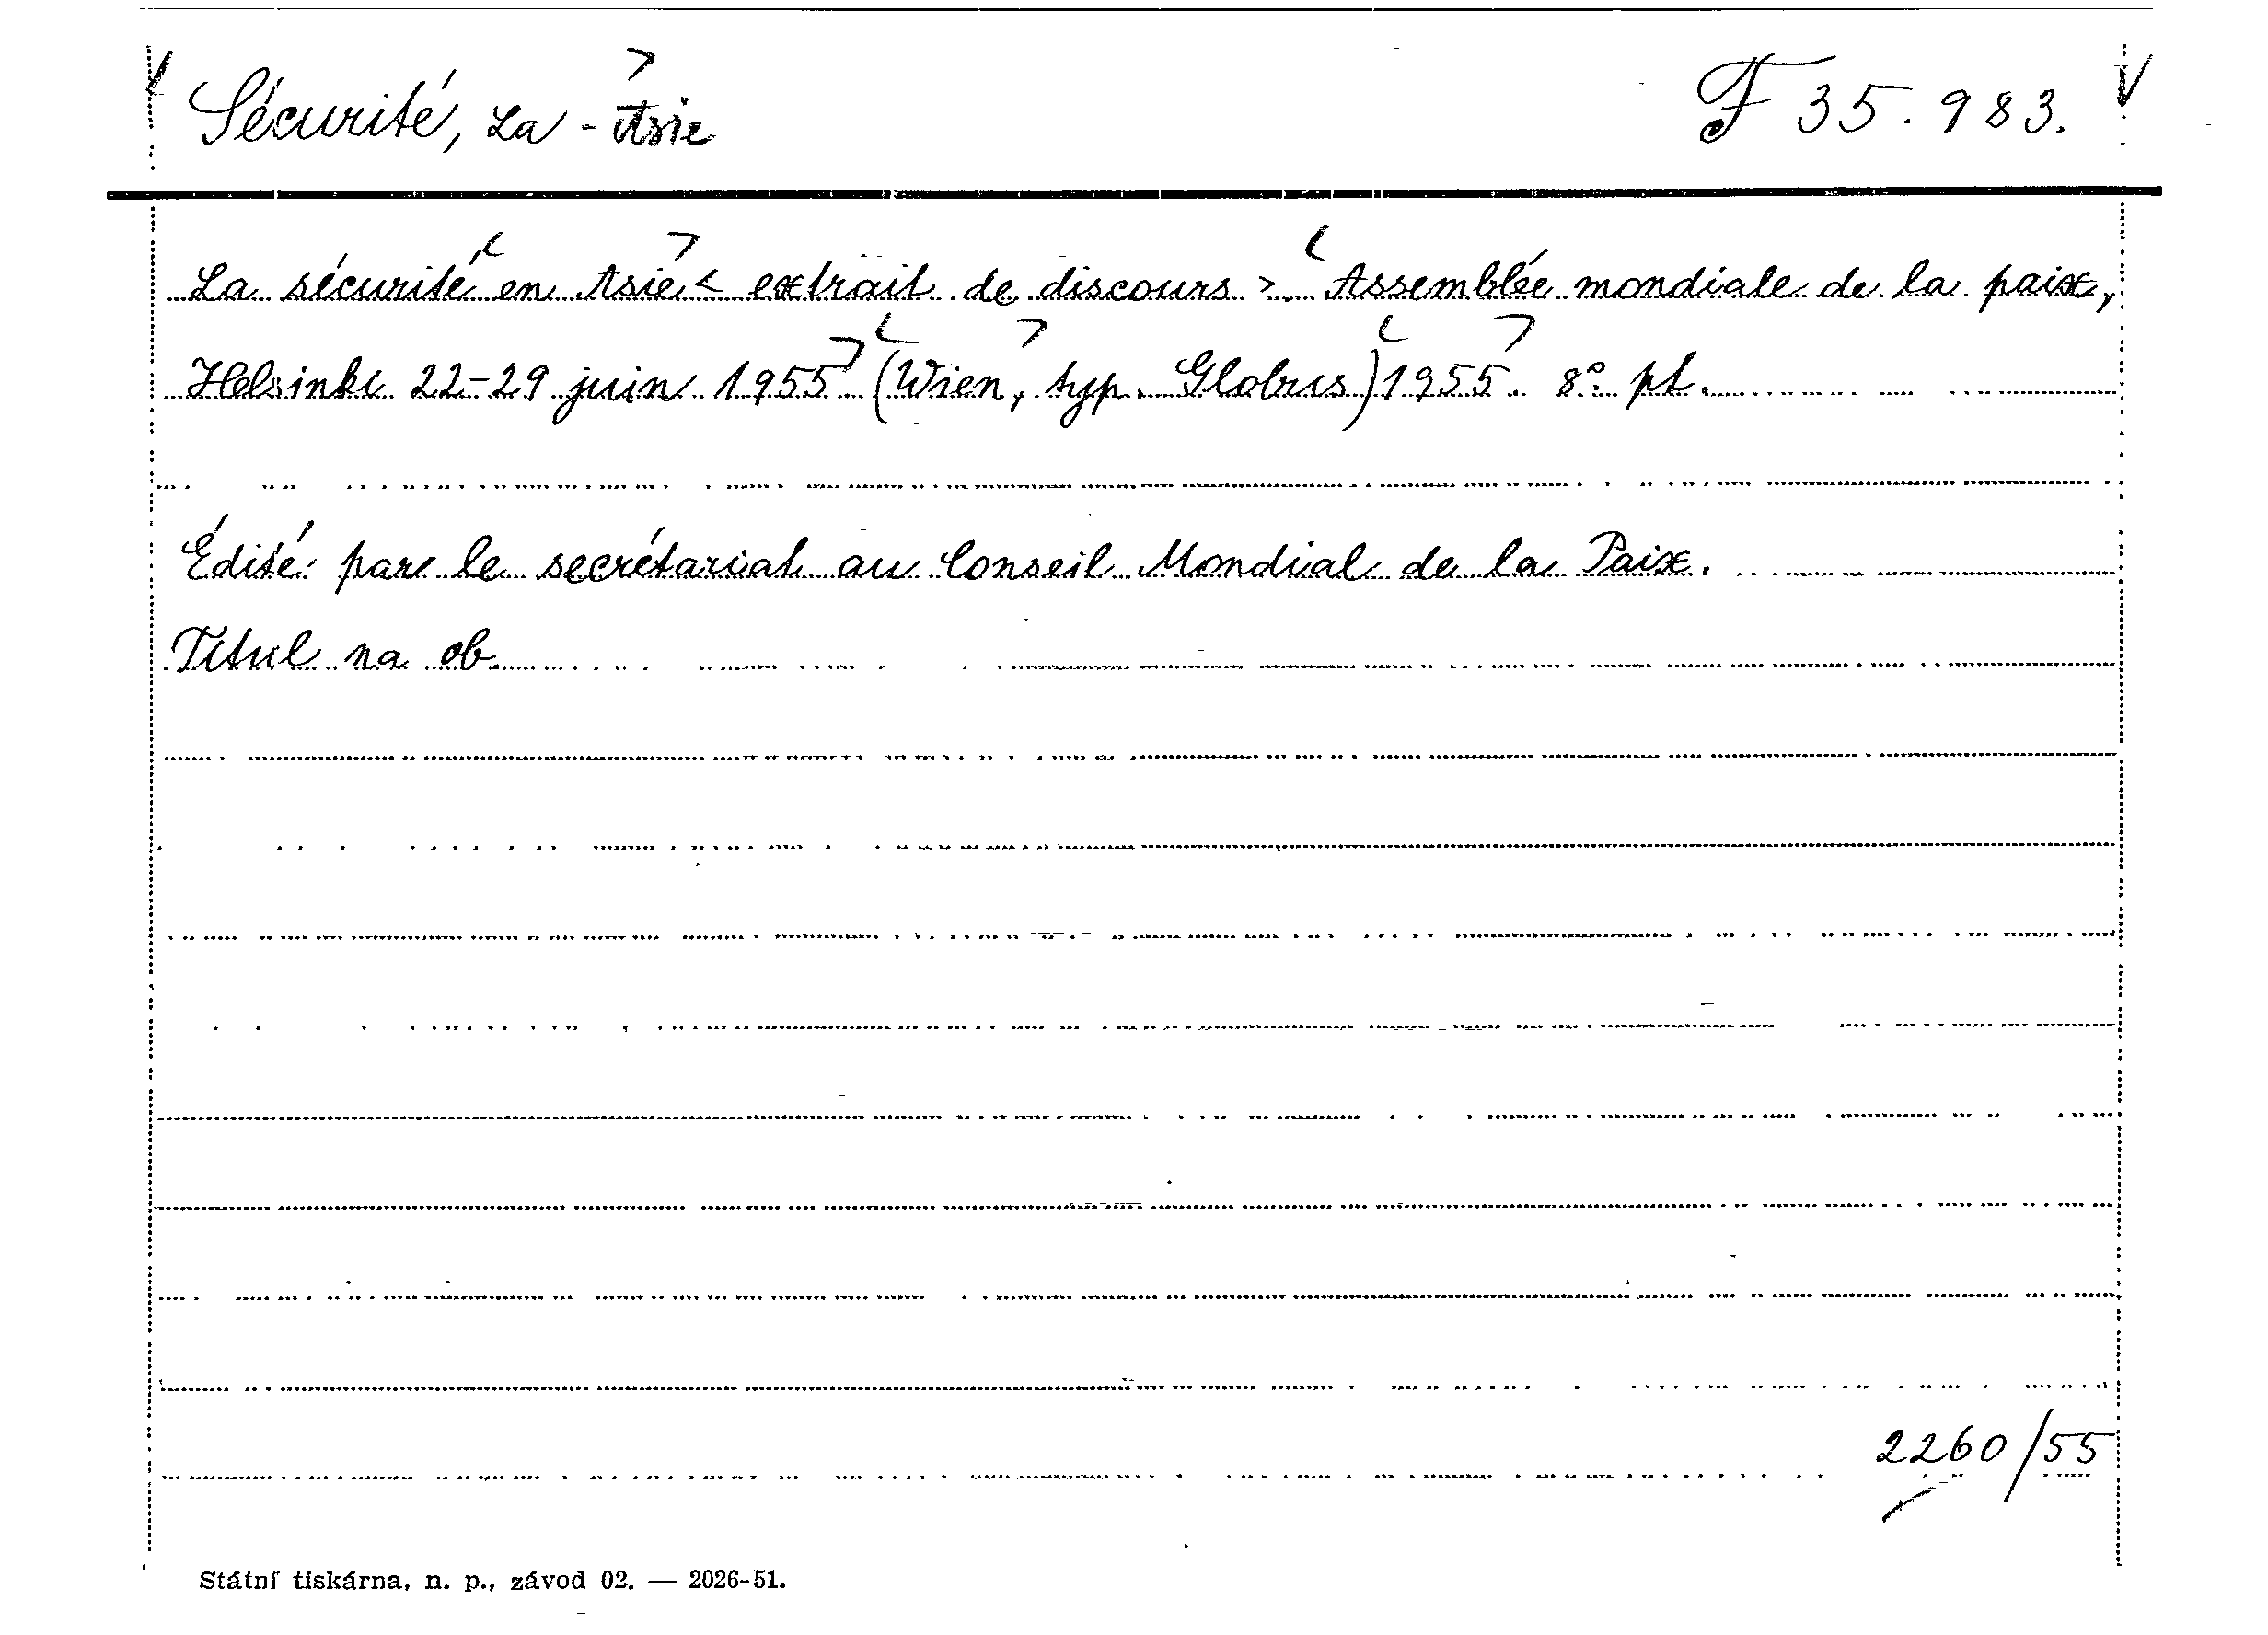 Sécurité, La - Asie F 35.983.
La sécurité en Asie < extrait de discours >. Assemblée mondiale de la paix,
Helsinki 22-29 juin 1955 (Wien, typ. Globus) 1955. 8° pt.
Édité par le secrétariat au Conseil Mondial de la Paix.
Titul na ob.
2260/55
Státní tiskárna, n. p., závod 02. — 2026-51.